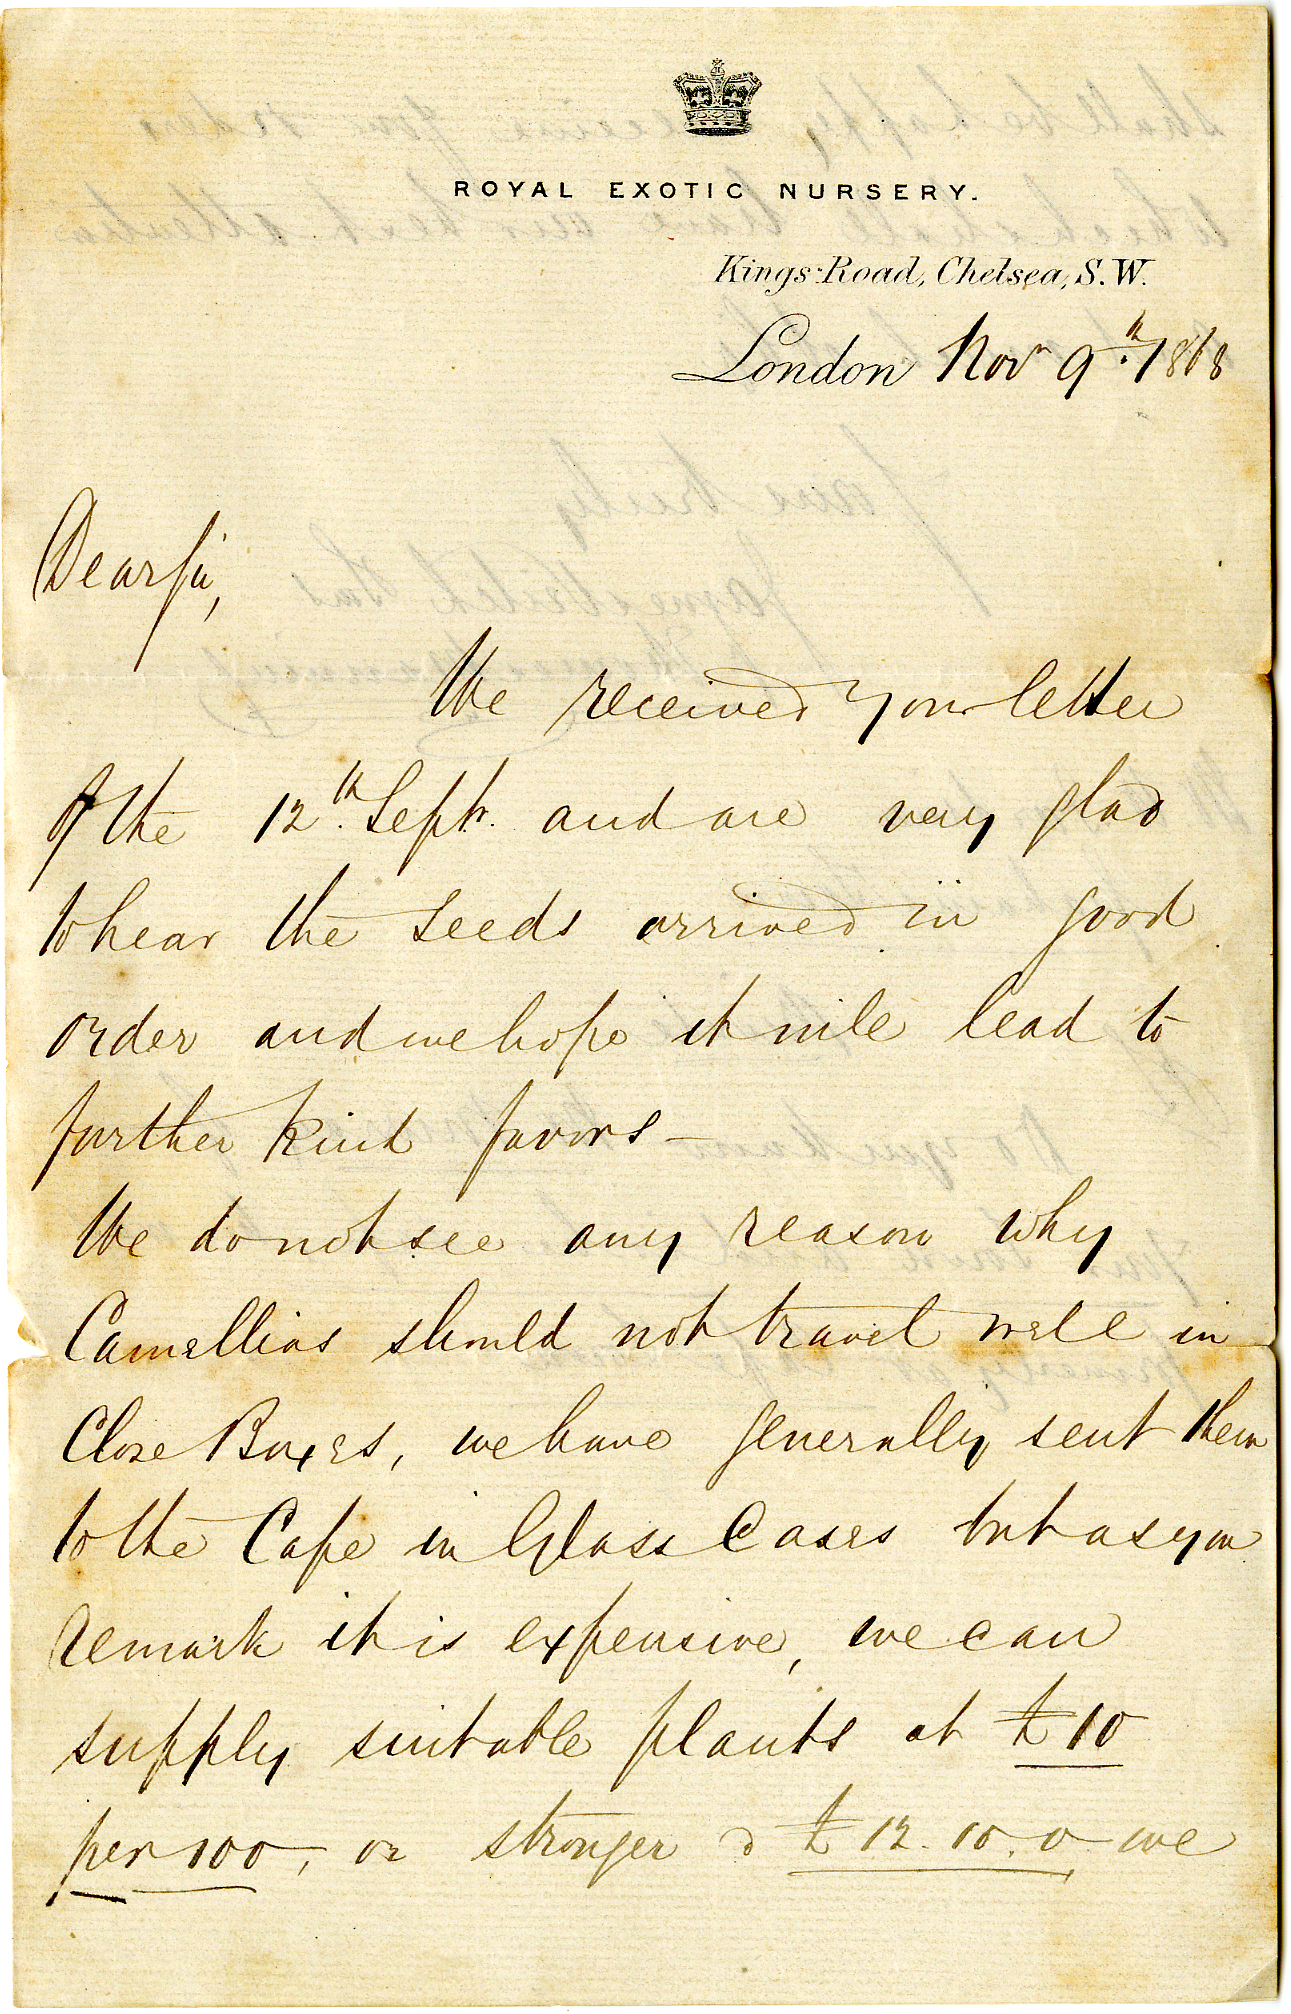 ROYAL EXOTIC NURSERY.
Kings Road, Chelsea, S.W.
London Novr 9th. 1868
Dear Sir,
We received your letter
of the 12th. Septr. and are very glad
to hear the seeds arrived in good
order and we hope it will lead to
further kind favors –
We do not see any reason why
Camellias should not travel well in
Close Boxes, we have generally sent them
to the Cape in Glass Cases but as you
remark it is expensive, we can
supply suitable plants at £10
per 100, or stronger £12.10.0 we